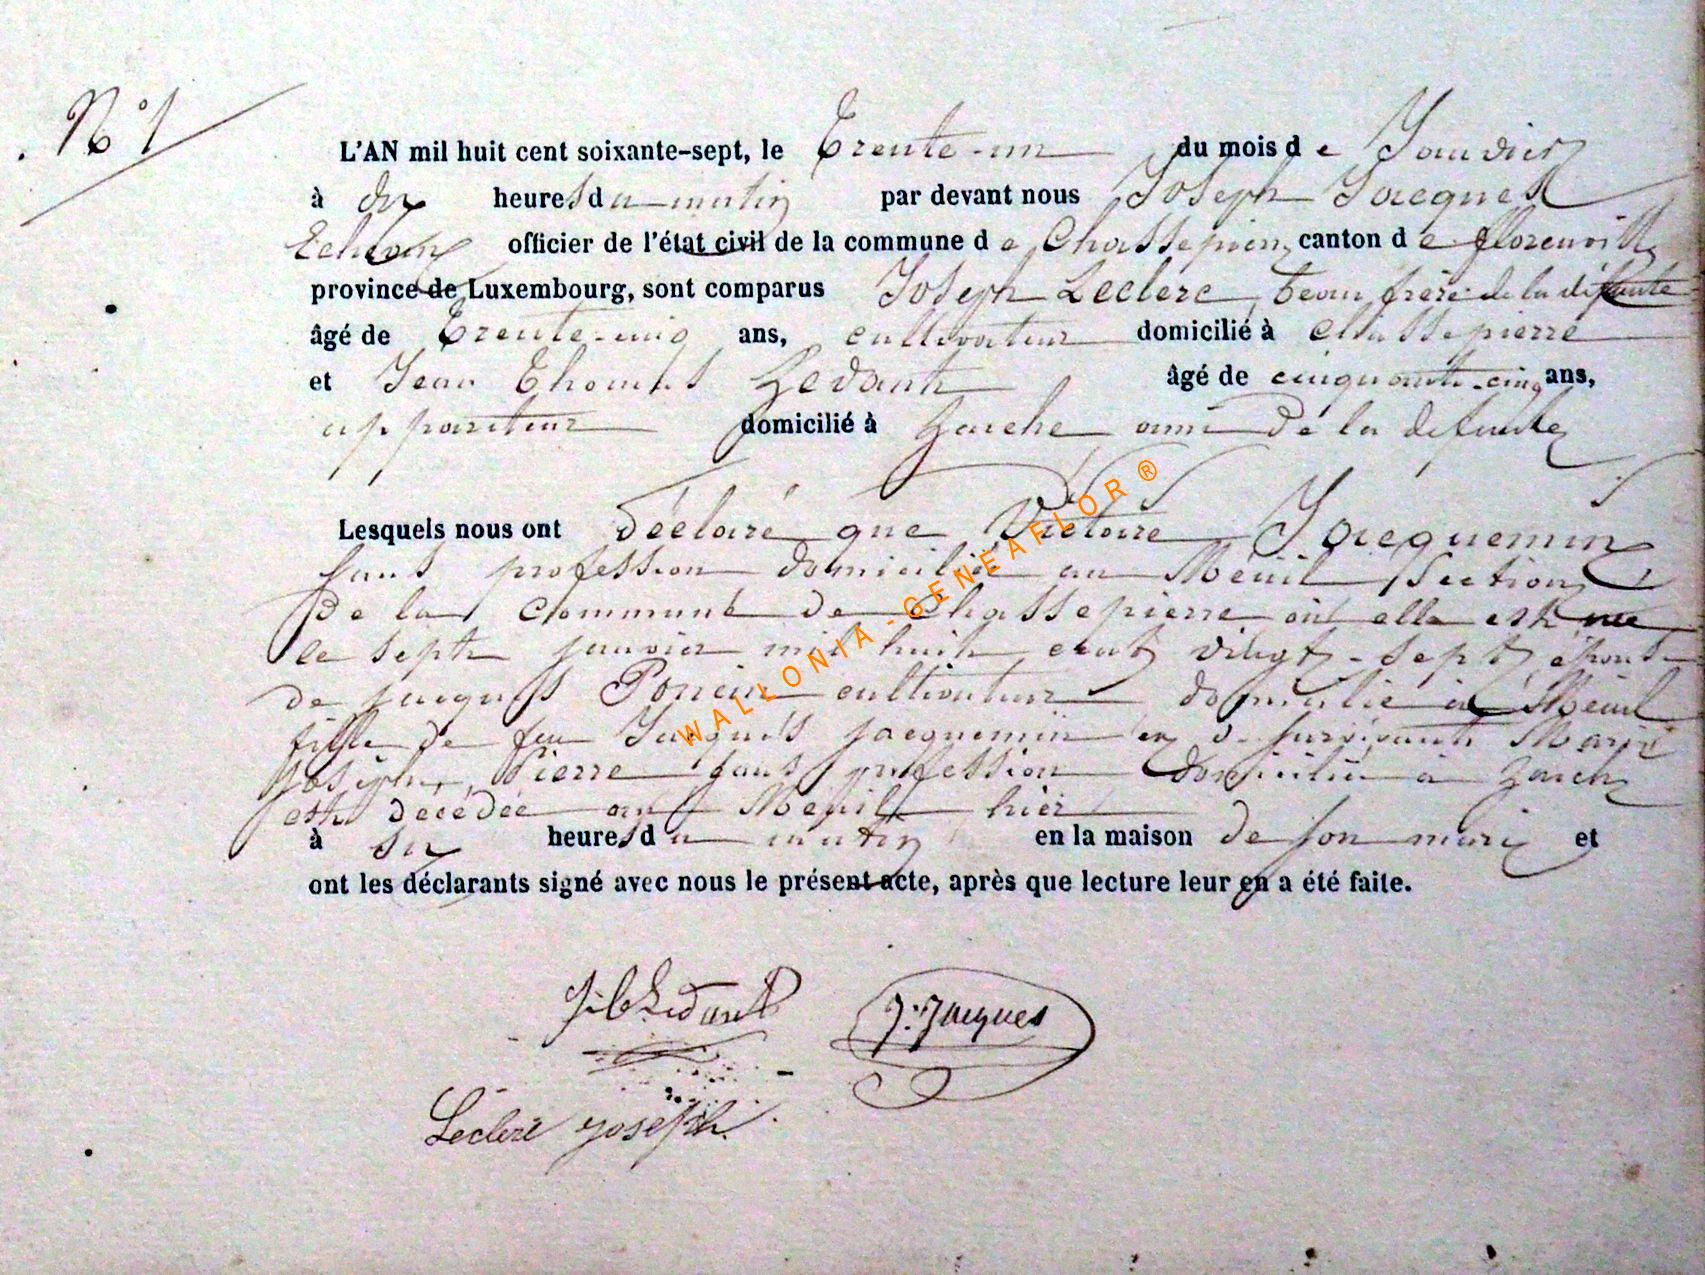 N° 1
L'AN mil huit cent soixante-sept, le Trente-un du mois de Janvier
à dix heures du matin par devant nous Joseph Jacques
Echevin officier de l'état civil de la commune de Chassepierre canton de florenville
province de Luxembourg, sont comparus Joseph Leclere, beau frère de la défunte
âgé de Trente-cinq ans, cultivateur domicilié à Chassepierre
et Jean Thomas Ledant âgé de cinquante-cinq ans,
appariteur domicilié à Izel ami de la defunte
Lesquels nous ont déclaré que Victoire Jacquemin
sans profession domicilié au Ménil Section
de la commune de Chassepierre où elle est née
le sept janvier mil huit cent vingt-sept, épouse
de jacques Poncin cultivateur domicilié à Ménil
fille de feu Jacques jacquemin et de survivante Marie
Josèphe Pierre sans profession domiciliée à
est décédée au Ménil hier
à six heures du matin en la maison de son mari et
ont les déclarants signé avec nous le présent acte, après que lecture leur en a été faite.
Ledant J. Jacques
Leclere joseph
WALLONIA-GENEAFLOR ®